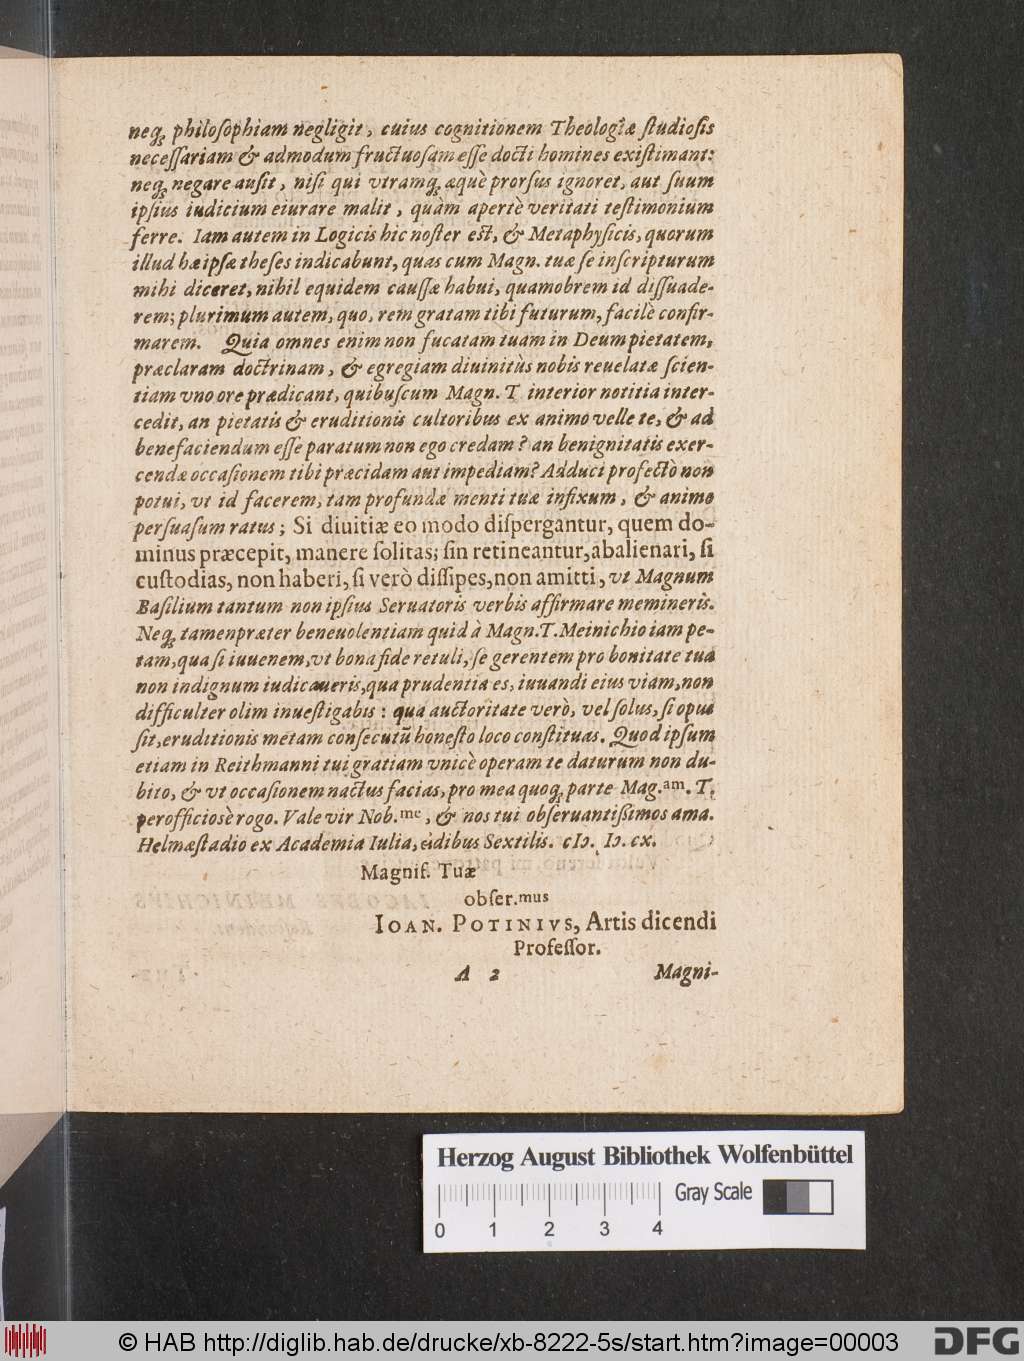 neq́ꝫ philoſophiam negligit, cuius cognitionem Theologiæ ſtudioſis
neceſſariam & admodum fructuoſam eſſe docti homines exiſtimant:
neq́ꝫ negare auſit, niſi qui vtramq́ꝫ æquè prorſus ignoret, aut ſuum
ipſius iudicium eiurare malit, quàm apertè veritati teſtimonium
ferre. Iam autem in Logicis hic noſter est, & Metaphyſicis, quorum
illud hæ ipſæ theſes indicabunt, quas cum Magn. tuæ ſe inſcripturum
mihi diceret, nihil equidem cauſſæ habui, quamobrem id diſſuade-
rem; plurimum autem, quo, rem gratam tibi futurum, facilè confir-
marem. Quia omnes enim non fucatam tuam in Deum pietatem,
præclaram doctrinam, & egregiam diuinitùs nobis reuelatæ ſcien-
tiam vno ore prædicant, quibuſcum Magn. T interior notitia inter-
cedit, an pietatis & eruditionis cultoribus ex animo velle te, & ad
benefaciendum eſſe paratum non ego credam? an benignitatis exer-
cendæ occaſionem tibi præcidam aut impediam? Adduci profectò non
potui, vt id facerem, tam profundæ menti tuæ infixum, & animo
perſuaſum ratus; Si diuitiæ eo modo diſpergantur, quem do-
minus præcepit, manere ſolitas; ſin retineantur, abalienari, ſi
cuſtodias, non haberi, ſi verò diſſipes, non amitti, vt Magnum
Baſilium tantum non ipſius Seruatoris verbis affirmare memineris.
Neq́ꝫ tamen præter beneuolentiam quid à Magn. T. Meinichio iam pe-
tam, qua ſi iuuenem, vt bona fide retuli, ſe gerentem pro bonitate tua
non indignum iudicaueris, qua prudentia es, iuuandi eius viam, non
difficulter olim inueſtigabis: qua auctoritate verò, vel ſolus, ſi opus
ſit, eruditionis metam conſecutū honeſto loco conſtituas. Quod ipſum
etiam in Reithmanni tui gratiam vnicè operam te daturum non du-
bito, & vt occaſionem nactus facias, pro mea quoq́ꝫ parte Mag.am. T.
perofficiosè rogo. Vale vir Nob.me, & nos tui obſeruantißimos ama.
Helmæſtadio ex Academia Iulia, eidibus Sextilis. cIɔ. Iɔ. cx.
Magnif. Tuæ
obſer.mus
IOAN. POTINIVS, Artis dicendi
Profeſſor.
A 2 Magni-
Herzog August Bibliothek Wolfenbüttel
Gray Scale
0 1 2 3 4
© HAB http://diglib.hab.de/drucke/xb-8222-5s/start.htm?image=00003
DFG